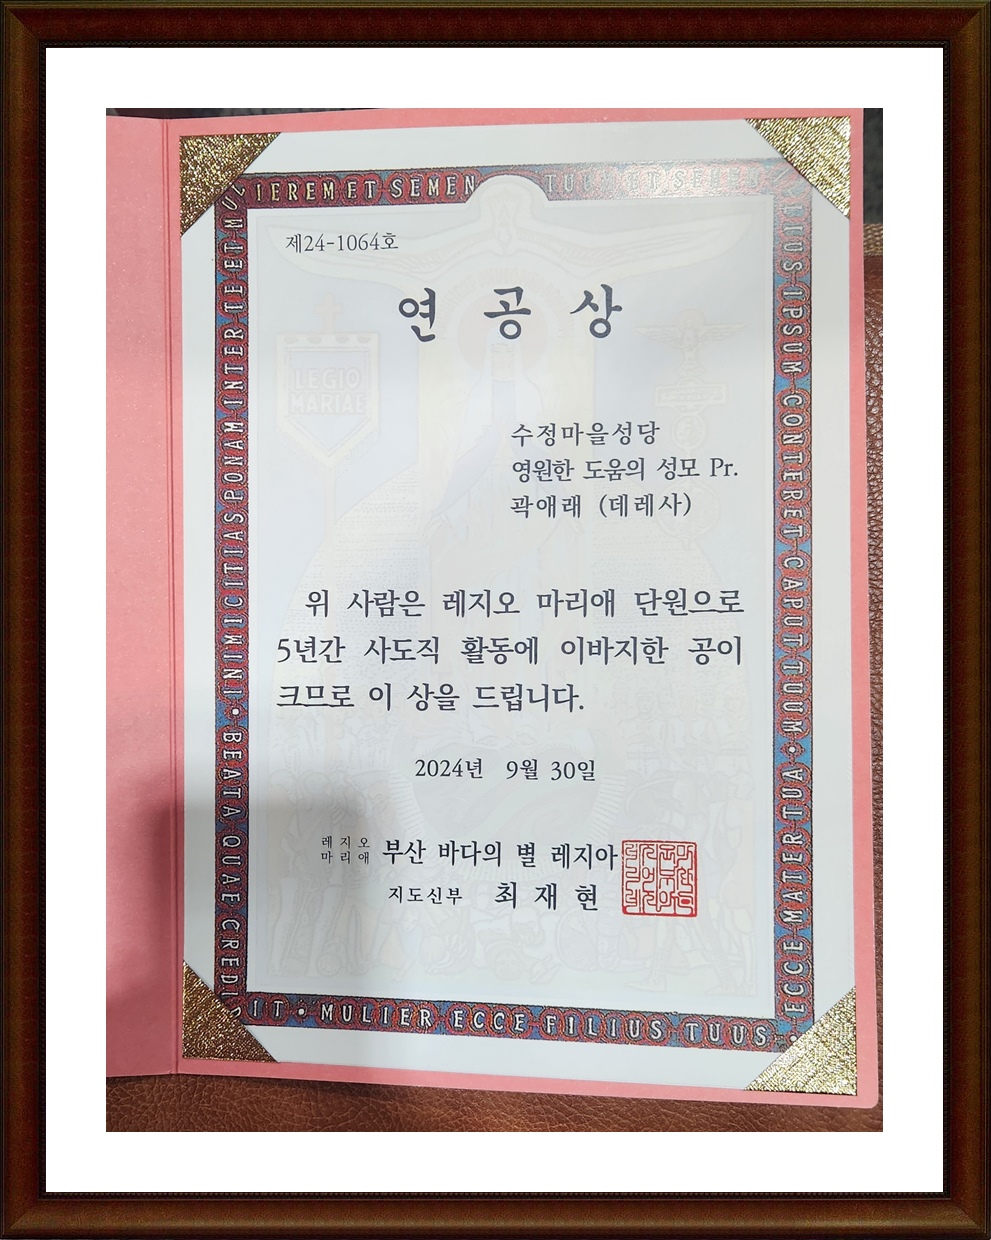 제24-1064호
연 공 상
수정마을성당
영원한 도움의 성모 Pr.
곽애래 (데레사)
위 사람은 레지오 마리애 단원으로
5년간 사도직 활동에 이바지한 공이
크므로 이 상을 드립니다.
2024년 9월 30일
레지오
마리애 부산 바다의 별 레지아
지도신부 최 재 현
LEGIO
MARIAE
INIMICITIAS PONAM INTER TE ET
MULIEREM ET SEMEN
TUUM ET SEMEN
IPSUM CONTERET CAPUT TUUM •
ECCE MATER TUA
• MULIER ECCE FILIUS TUUS •
BEATA QUAE CREDIDIT